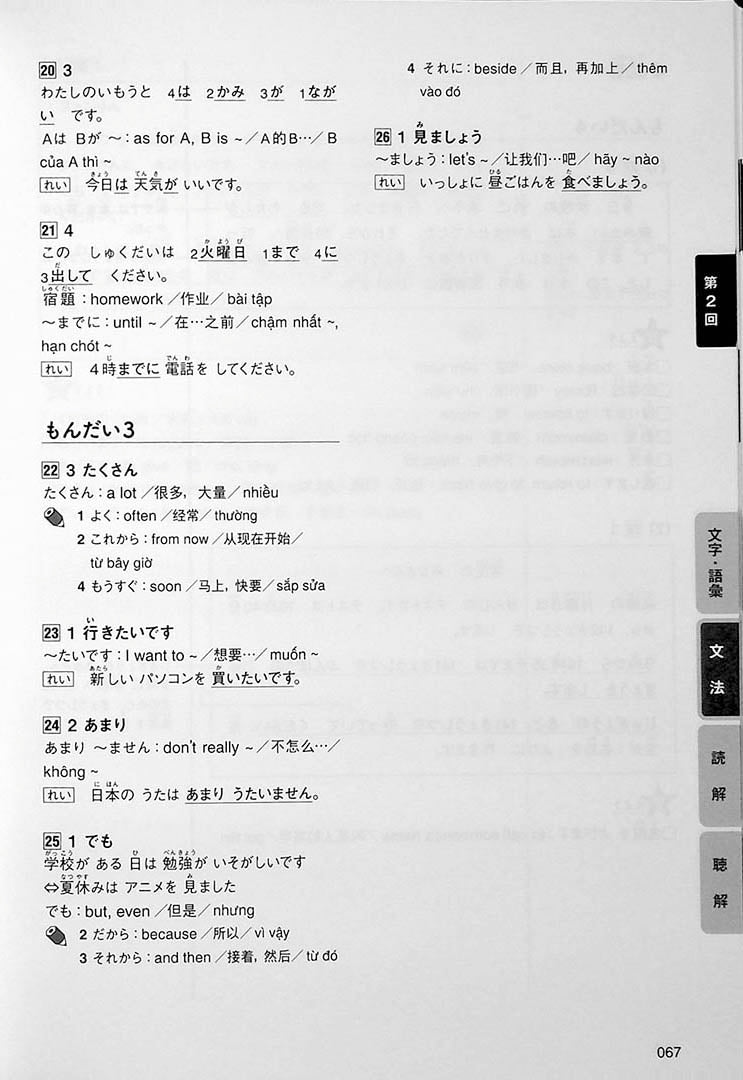 20 3
わたしのいもうと 4は 2かみ 3が 1なが
い です。
Aは Bが ～：as for A, B is ~／A的B…／B
của A thì ~
れい 今日は 天気が いいです。
21 4
この しゅくだいは 2火曜日 1まで 4に
3出して ください。
宿題：homework／作业／bài tập
～までに：until ~／在…之前／chậm nhất ~,
hạn chót ~
れい 4時までに 電話を してください。
もんだい3
22 3 たくさん
たくさん：a lot／很多，大量／nhiều
1 よく：often／经常／thường
2 これから：from now／从现在开始／
từ bây giờ
4 もうすぐ：soon／马上，快要／sắp sửa
23 1 行きたいです
～たいです：I want to ~／想要…／muốn ~
れい 新しい パソコンを 買いたいです。
24 2 あまり
あまり ～ません：don't really ~／不怎么…／
không ~
れい 日本の うたは あまり うたいません。
25 1 でも
学校が ある 日は 勉強が いそがしいです
⇔夏休みは アニメを 見ました
でも：but, even／但是／nhưng
2 だから：because／所以／vì vậy
3 それから：and then／接着，然后／từ đó
4 それに：beside／而且，再加上／thêm
vào đó
26 1 見ましょう
～ましょう：let's ~／让我们…吧／hãy ~ nào
れい いっしょに 昼ごはんを 食べましょう。
第2回
文字・語彙
文法
読解
聴解
067